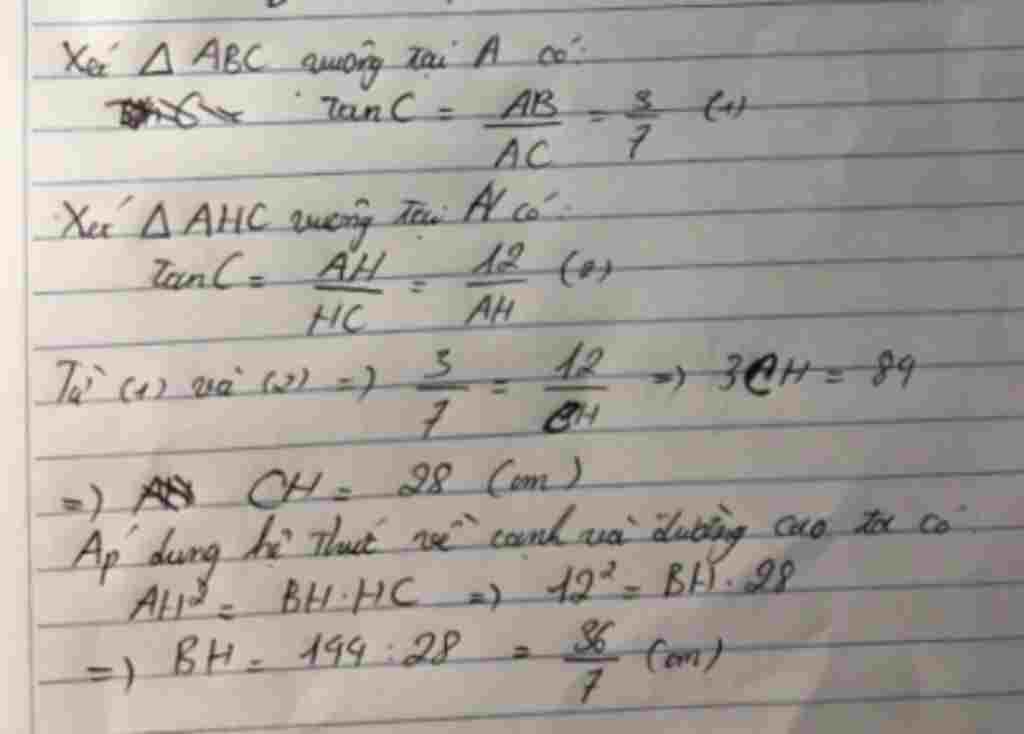 Xét Δ ABC vuông tại A có:
tanC = AB/AC = 3/7 (1)
Xét Δ AHC vuông tại H có:
tanC = AH/HC = 12/AH (2)
Từ (1) và (2) => 3/7 = 12/CH => 3CH = 84
=> CH = 28 (cm)
Áp dụng hệ thức về cạnh và đường cao ta có
AH² = BH.HC => 12² = BH.28
=> BH = 144 : 28 = 36/7 (cm)